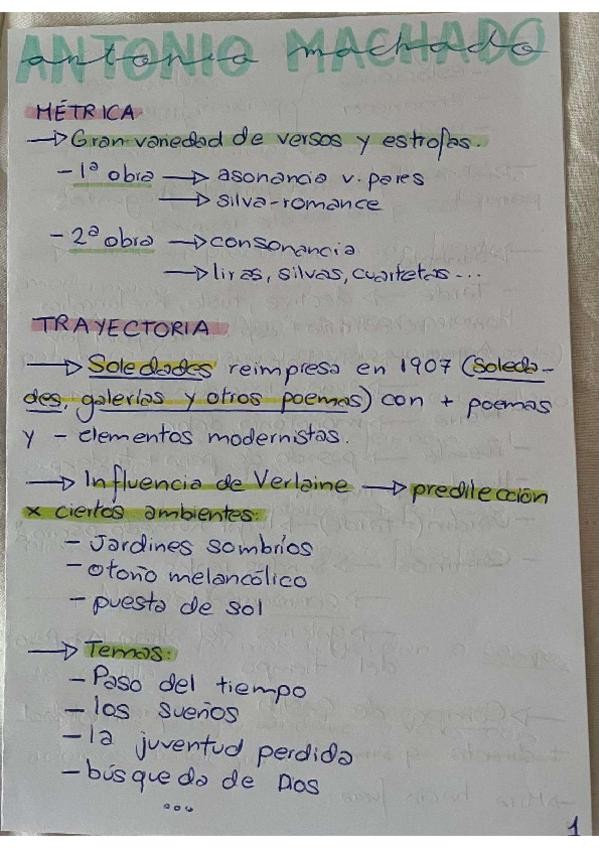 ANTONIO MACHADO
antonio machado
MÉTRICA
→ Gran variedad de versos y estrofas.
- 1ª obra → asonancia v. pares
→ silva-romance
- 2ª obra → consonancia
→ liras, silvas, cuartetas...
TRAYECTORIA
→ Soledades reimpresa en 1907 (Soleda-
des, galerías y otros poemas) con + poemas
y - elementos modernistas.
→ Influencia de Verlaine → predilección
x ciertos ambientes:
- Jardines sombríos
- otoño melancólico
- puesta de sol
→ Temas:
- Paso del tiempo
- los sueños
- la juventud perdida
- búsqueda de Dios
...
1